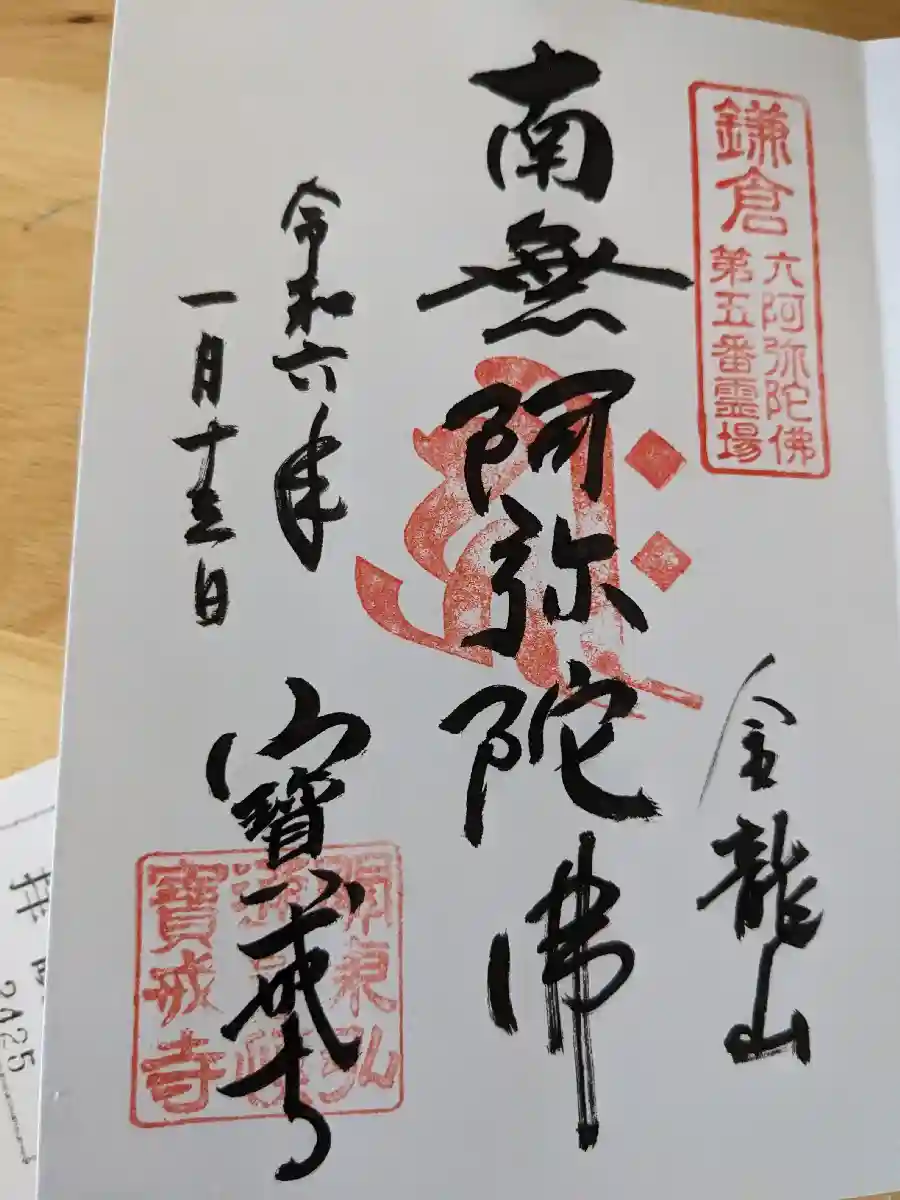 鎌倉
六阿弥陀佛
第五番霊場
金龍山
南無阿弥陀佛
令和六年
一月十三日
寶戒寺
寶戒寺
2425